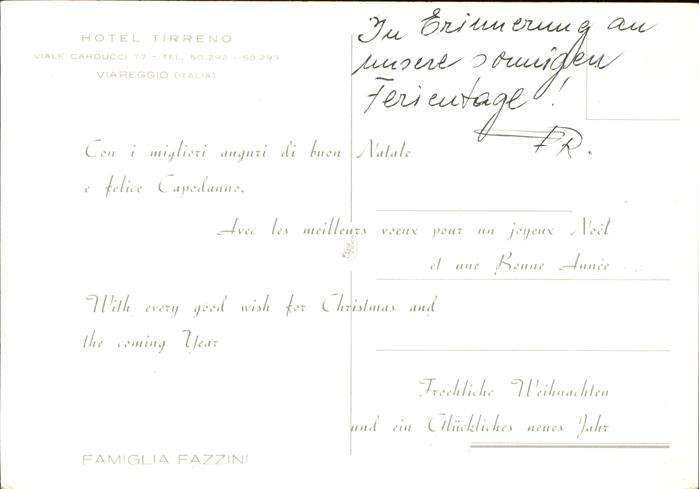 HOTEL TIRRENO
VIALE CARDUCCI 77 - TEL. 50.292 - 50.293
VIAREGGIO (ITALIA)
In Erinnerung an
unsere sonnigen
Ferientage !
PR.
Con i migliori auguri di buon Natale
e felice Capodanno.
Avec les meilleurs voeux pour un joyeux Noël
et une Bonne Année
With every good wish for Christmas and
the coming Year
Froehliche Weihnachten
und ein Glückliches neues Jahr
FAMIGLIA FAZZINI